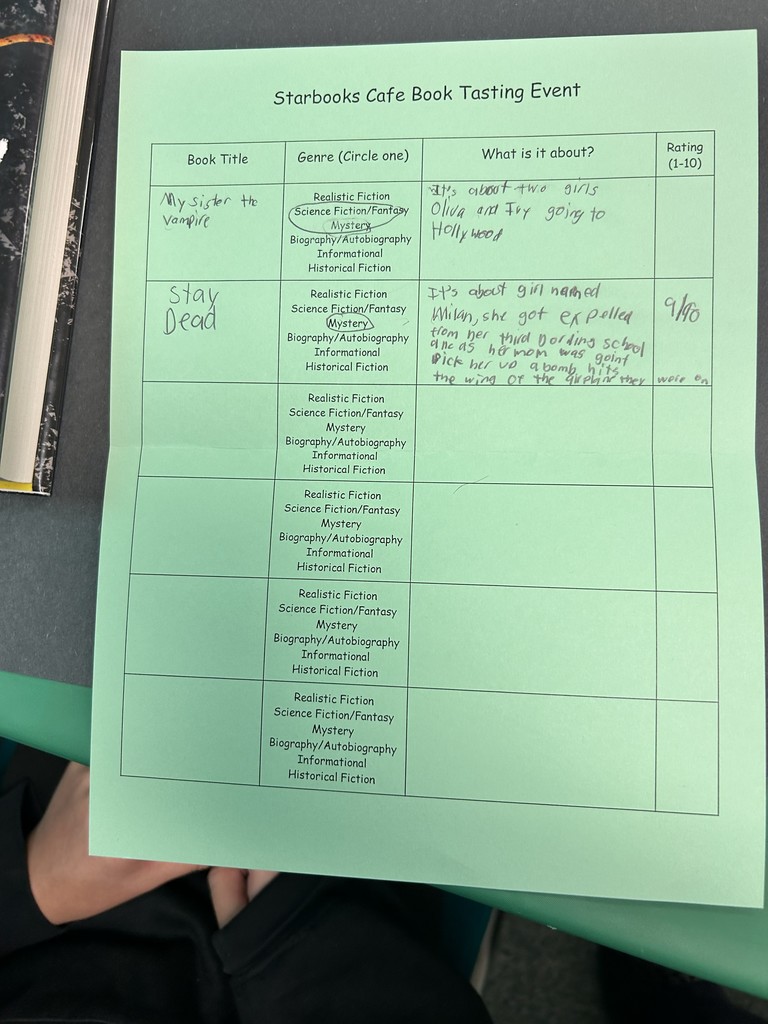 Starbooks Cafe Book Tasting Event
Book Title
Genre (Circle one)
What is it about?
Rating
(1-10)
My sister the
vampire
Realistic Fiction
Science Fiction/Fantasy
Mystery
Biography/Autobiography
Informational
Historical Fiction
It's about two girls
Oliva and Ivy going to
Hollywood
Stay
Dead
Realistic Fiction
Science Fiction/Fantasy
Mystery
Biography/Autobiography
Informational
Historical Fiction
It's about girl named
Milan, she got expelled
from her third bording school
as her mom was goint
Pick her up a bomb hits
the wing of the they were on
Realistic Fiction
Science Fiction/Fantasy
Mystery
Biography/Autobiography
Informational
Historical Fiction
Realistic Fiction
Science Fiction/Fantasy
Mystery
Biography/Autobiography
Informational
Historical Fiction
Realistic Fiction
Science Fiction/Fantasy
Mystery
Biography/Autobiography
Informational
Historical Fiction
Realistic Fiction
Science Fiction/Fantasy
Mystery
Biography/Autobiography
Informational
Historical Fiction